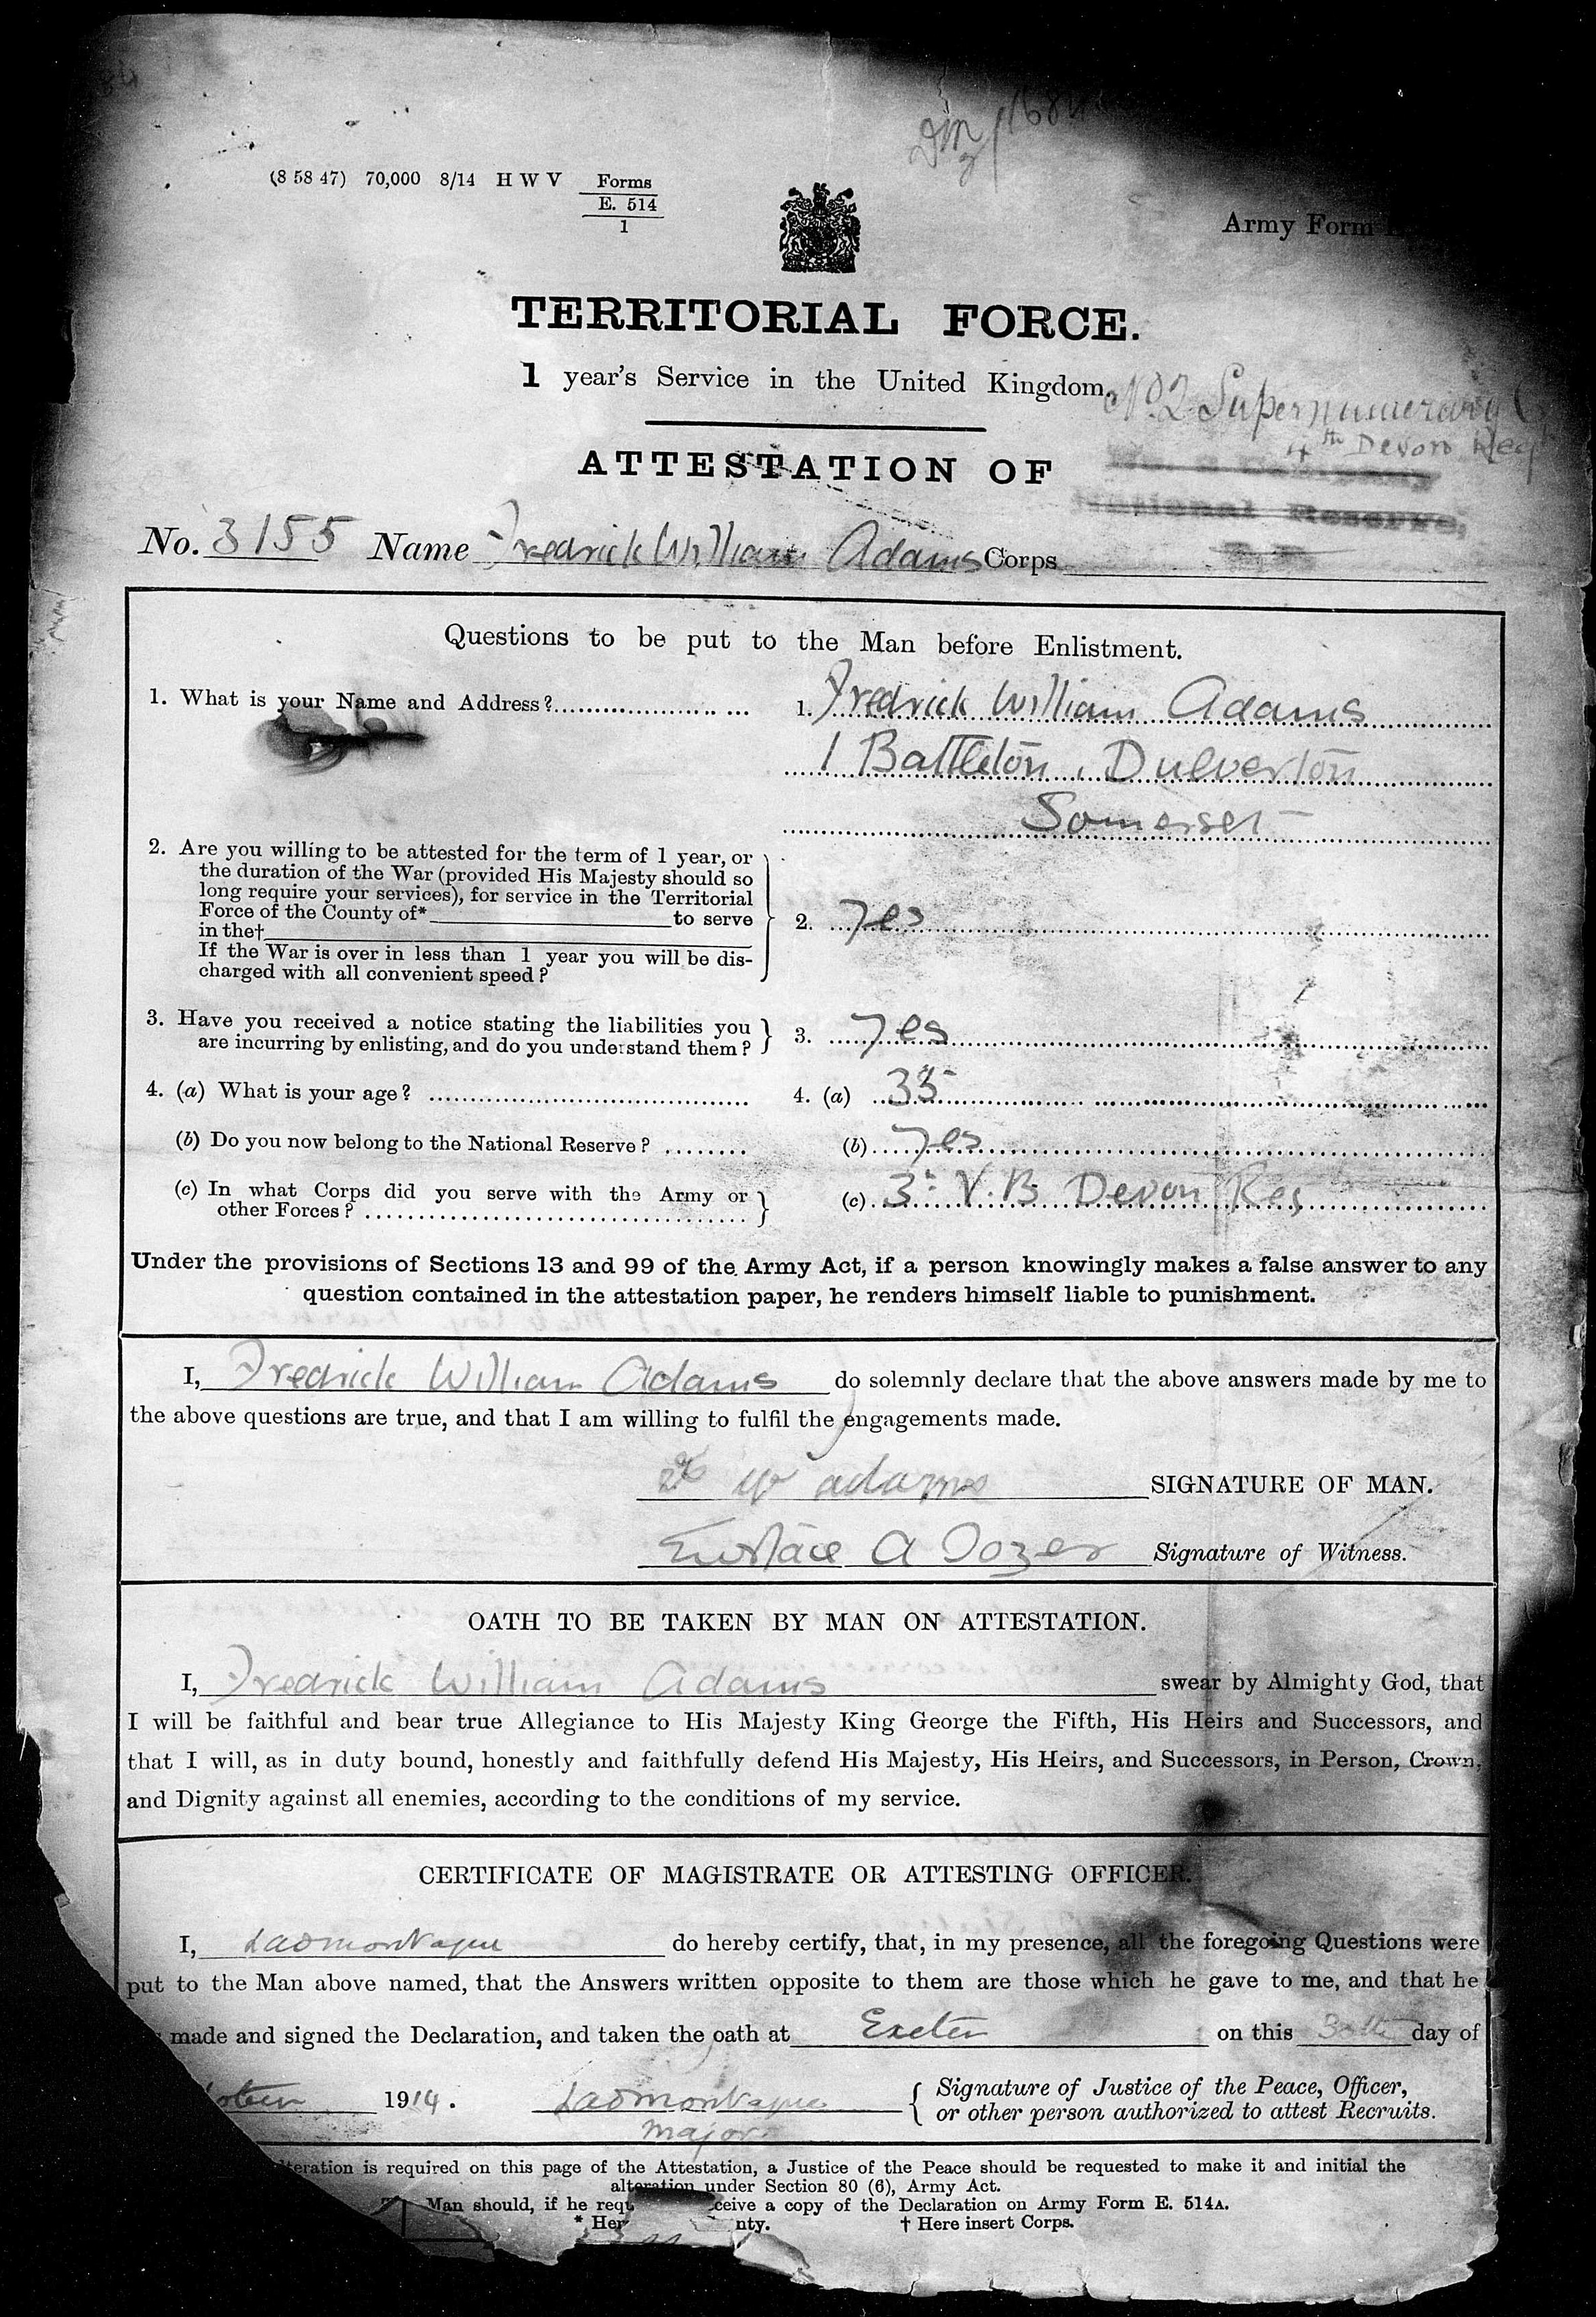 (8 58 47) 70,000 8/14 H W V Forms
E. 514
1
Army Form
TERRITORIAL FORCE.
1 year's Service in the United Kingdom.
No. 2 Supernumerary
4th Devon Regt
ATTESTATION OF
National Reserve,
No. 3155 Name Fredrick William Adams Corps
Questions to be put to the Man before Enlistment.
1. What is your Name and Address?
1. Fredrick William Adams
1 Battleton, Dulverton
Somerset
2. Are you willing to be attested for the term of 1 year, or
the duration of the War (provided His Majesty should so
long require your services), for service in the Territorial
Force of the County of* to serve
in the†
If the War is over in less than 1 year you will be dis-
charged with all convenient speed?
2. Yes
3. Have you received a notice stating the liabilities you
are incurring by enlisting, and do you understand them?
3. Yes
4. (a) What is your age? 4. (a) 35
(b) Do you now belong to the National Reserve? (b) Yes
(c) In what Corps did you serve with the Army or
other Forces?
(c) 3rd V.B. Devon Reg
Under the provisions of Sections 13 and 99 of the Army Act, if a person knowingly makes a false answer to any
question contained in the attestation paper, he renders himself liable to punishment.
I, Fredrick William Adams do solemnly declare that the above answers made by me to
the above questions are true, and that I am willing to fulfil the engagements made.
W adams SIGNATURE OF MAN.
Eustace A Tozer Signature of Witness.
OATH TO BE TAKEN BY MAN ON ATTESTATION.
I, Fredrick William Adams swear by Almighty God, that
I will be faithful and bear true Allegiance to His Majesty King George the Fifth, His Heirs and Successors, and
that I will, as in duty bound, honestly and faithfully defend His Majesty, His Heirs, and Successors, in Person, Crown,
and Dignity against all enemies, according to the conditions of my service.
CERTIFICATE OF MAGISTRATE OR ATTESTING OFFICER.
I, do hereby certify, that, in my presence, all the foregoing Questions were
put to the Man above named, that the Answers written opposite to them are those which he gave to me, and that he
made and signed the Declaration, and taken the oath at Exeter on this 30th day of
1914.
Signature of Justice of the Peace, Officer,
or other person authorized to attest Recruits.
Major
alteration is required on this page of the Attestation, a Justice of the Peace should be requested to make it and initial the
alteration under Section 80 (6), Army Act.
Man should, if he receive a copy of the Declaration on Army Form E. 514A.
* Here † Here insert Corps.